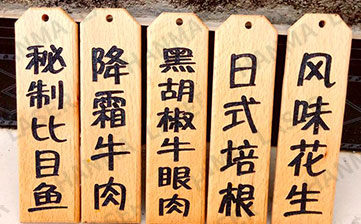 秘制比目鱼
降霜牛肉
黑胡椒牛眼肉
日式培根
风味花生